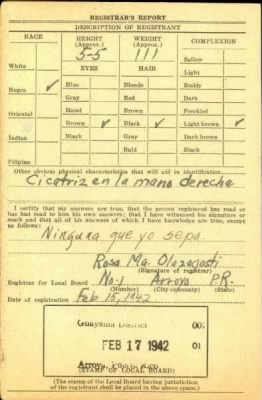 REGISTRAR'S REPORT
DESCRIPTION OF REGISTRANT
RACE
HEIGHT
(Approx.)
WEIGHT
(Approx.)
COMPLEXION
5-5
111
Sallow
White
EYES
HAIR
Light
Negro ✓
Blue
Blonde
Ruddy
Gray
Red
Dark
Oriental
Hazel
Brown
Freckled
Brown ✓
Black ✓
Light brown ✓
Indian
Black
Gray
Dark brown
Bald
Black
Filipino
Other obvious physical characteristics that will aid in identification
Cicatriz en la mano derecha
I certify that my answers are true; that the person registered has read or
has had read to him his own answers; that I have witnessed his signature
or mark and that all of his answers of which I have knowledge are true, except
as follows:
Ninguna que yo sepa
Rosa Ma. Olazagasti
(Signature of registrar)
Registrar for Local Board No. 1 Arroyo P.R.
(Number) (City or county) (State)
Date of registration Feb. 15, 1942
Guayama District 00
FEB 17 1942 01
Arroyo,
(STAMP OF LOCAL BOARD)
(The stamp of the Local Board having jurisdiction
of the registrant shall be placed in the above space.)